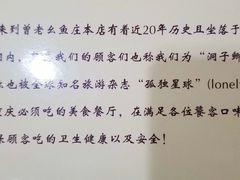 来到曾老幺鱼庄本店有着近20年历史且坐落于
内，我们的顾客们也称我们为“洞子鲫
也被全球知名旅游杂志“孤独星球”(lonely
庆必须吃的美食餐厅，在满足各位饕客口味
顾客吃的卫生健康以及安全！